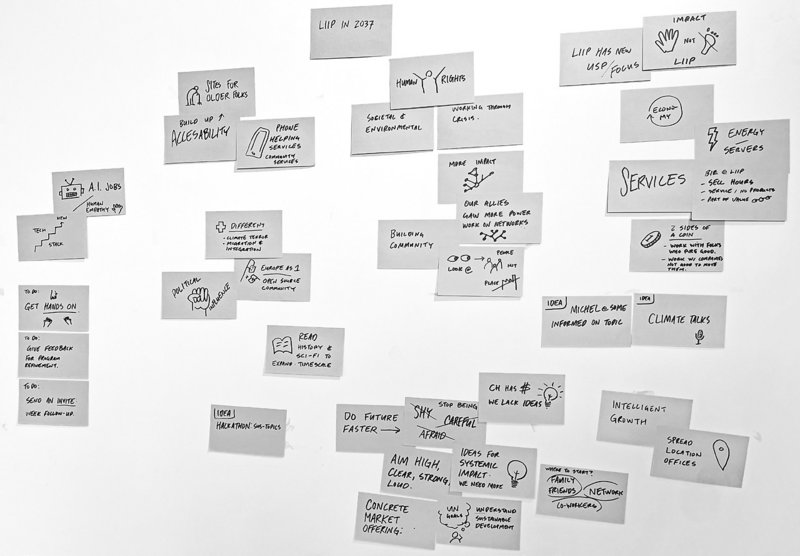 LIIP IN 2037
IMPACT
NOT
LIIP
LIIP HAS NEW
USP/
FOCUS
HUMAN RIGHTS
SOCIETAL &
ENVIRONMENTAL
WORKING THROUGH
CRISIS.
SITES FOR
OLDER FOLKS
BUILD UP ↑
ACCESABILITY
PHONE
HELPING
SERVICES
COMMUNITY
SERVICES
ECONO
MY
ENERGY
SERVERS
SERVICES
BIZ @ LIIP
- SELL HOURS
- SERVICE / NO PRODUCTS
- PART OF VALUE
2 SIDES OF
A COIN
- WORK WITH FOLKS
WHO PURE GOOD.
- WORK W/ COMPANIES
NOT GOOD TO MOVE
THEM.
MORE IMPACT
OUR ALLIES
GAIN MORE POWER
WORK ON NETWORKS
BUILDING
COMMUNITY
LOOK @
PEOPLE
NOT
PLACE
A.I. JOBS
HUMAN
EMPATHY
NEW
TECH
STACK
DIFFERENT
- CLIMATE TERROR
- MIGRATION &
INTEGRATION
EUROPE AS 1
OPEN SOURCE
COMMUNITY
POLITICAL
INFLUENCE
TO DO:
GET HANDS ON.
TO DO:
GIVE FEEDBACK
FOR PROGRAM
REFINEMENT.
TO DO:
SEND AN INVITE.
WEEK FOLLOW-UP.
READ
HISTORY &
SCI-FI TO
EXPAND TIMESCALE
IDEA
MICHEL @ SOME
INFORMED ON TOPIC
IDEA
CLIMATE TALKS
IDEA
HACKATHON: SUS-TOPICS
DO FUTURE
FASTER →
STOP BEING
SHY
CAREFUL
AFRAID
CH HAS $
WE LACK IDEAS
AIM HIGH,
CLEAR, STRONG,
LOUD.
IDEAS FOR
SYSTEMIC
IMPACT.
WE NEED MORE
CONCRETE
MARKET
OFFERING:
UN
GOALS
UNDERSTAND
SUSTAINABLE
DEVELOPMENT
WHERE TO START?
FAMILY
FRIENDS
NETWORK
CO-WORKERS
INTELLIGENT
GROWTH
SPREAD
LOCATION
OFFICES